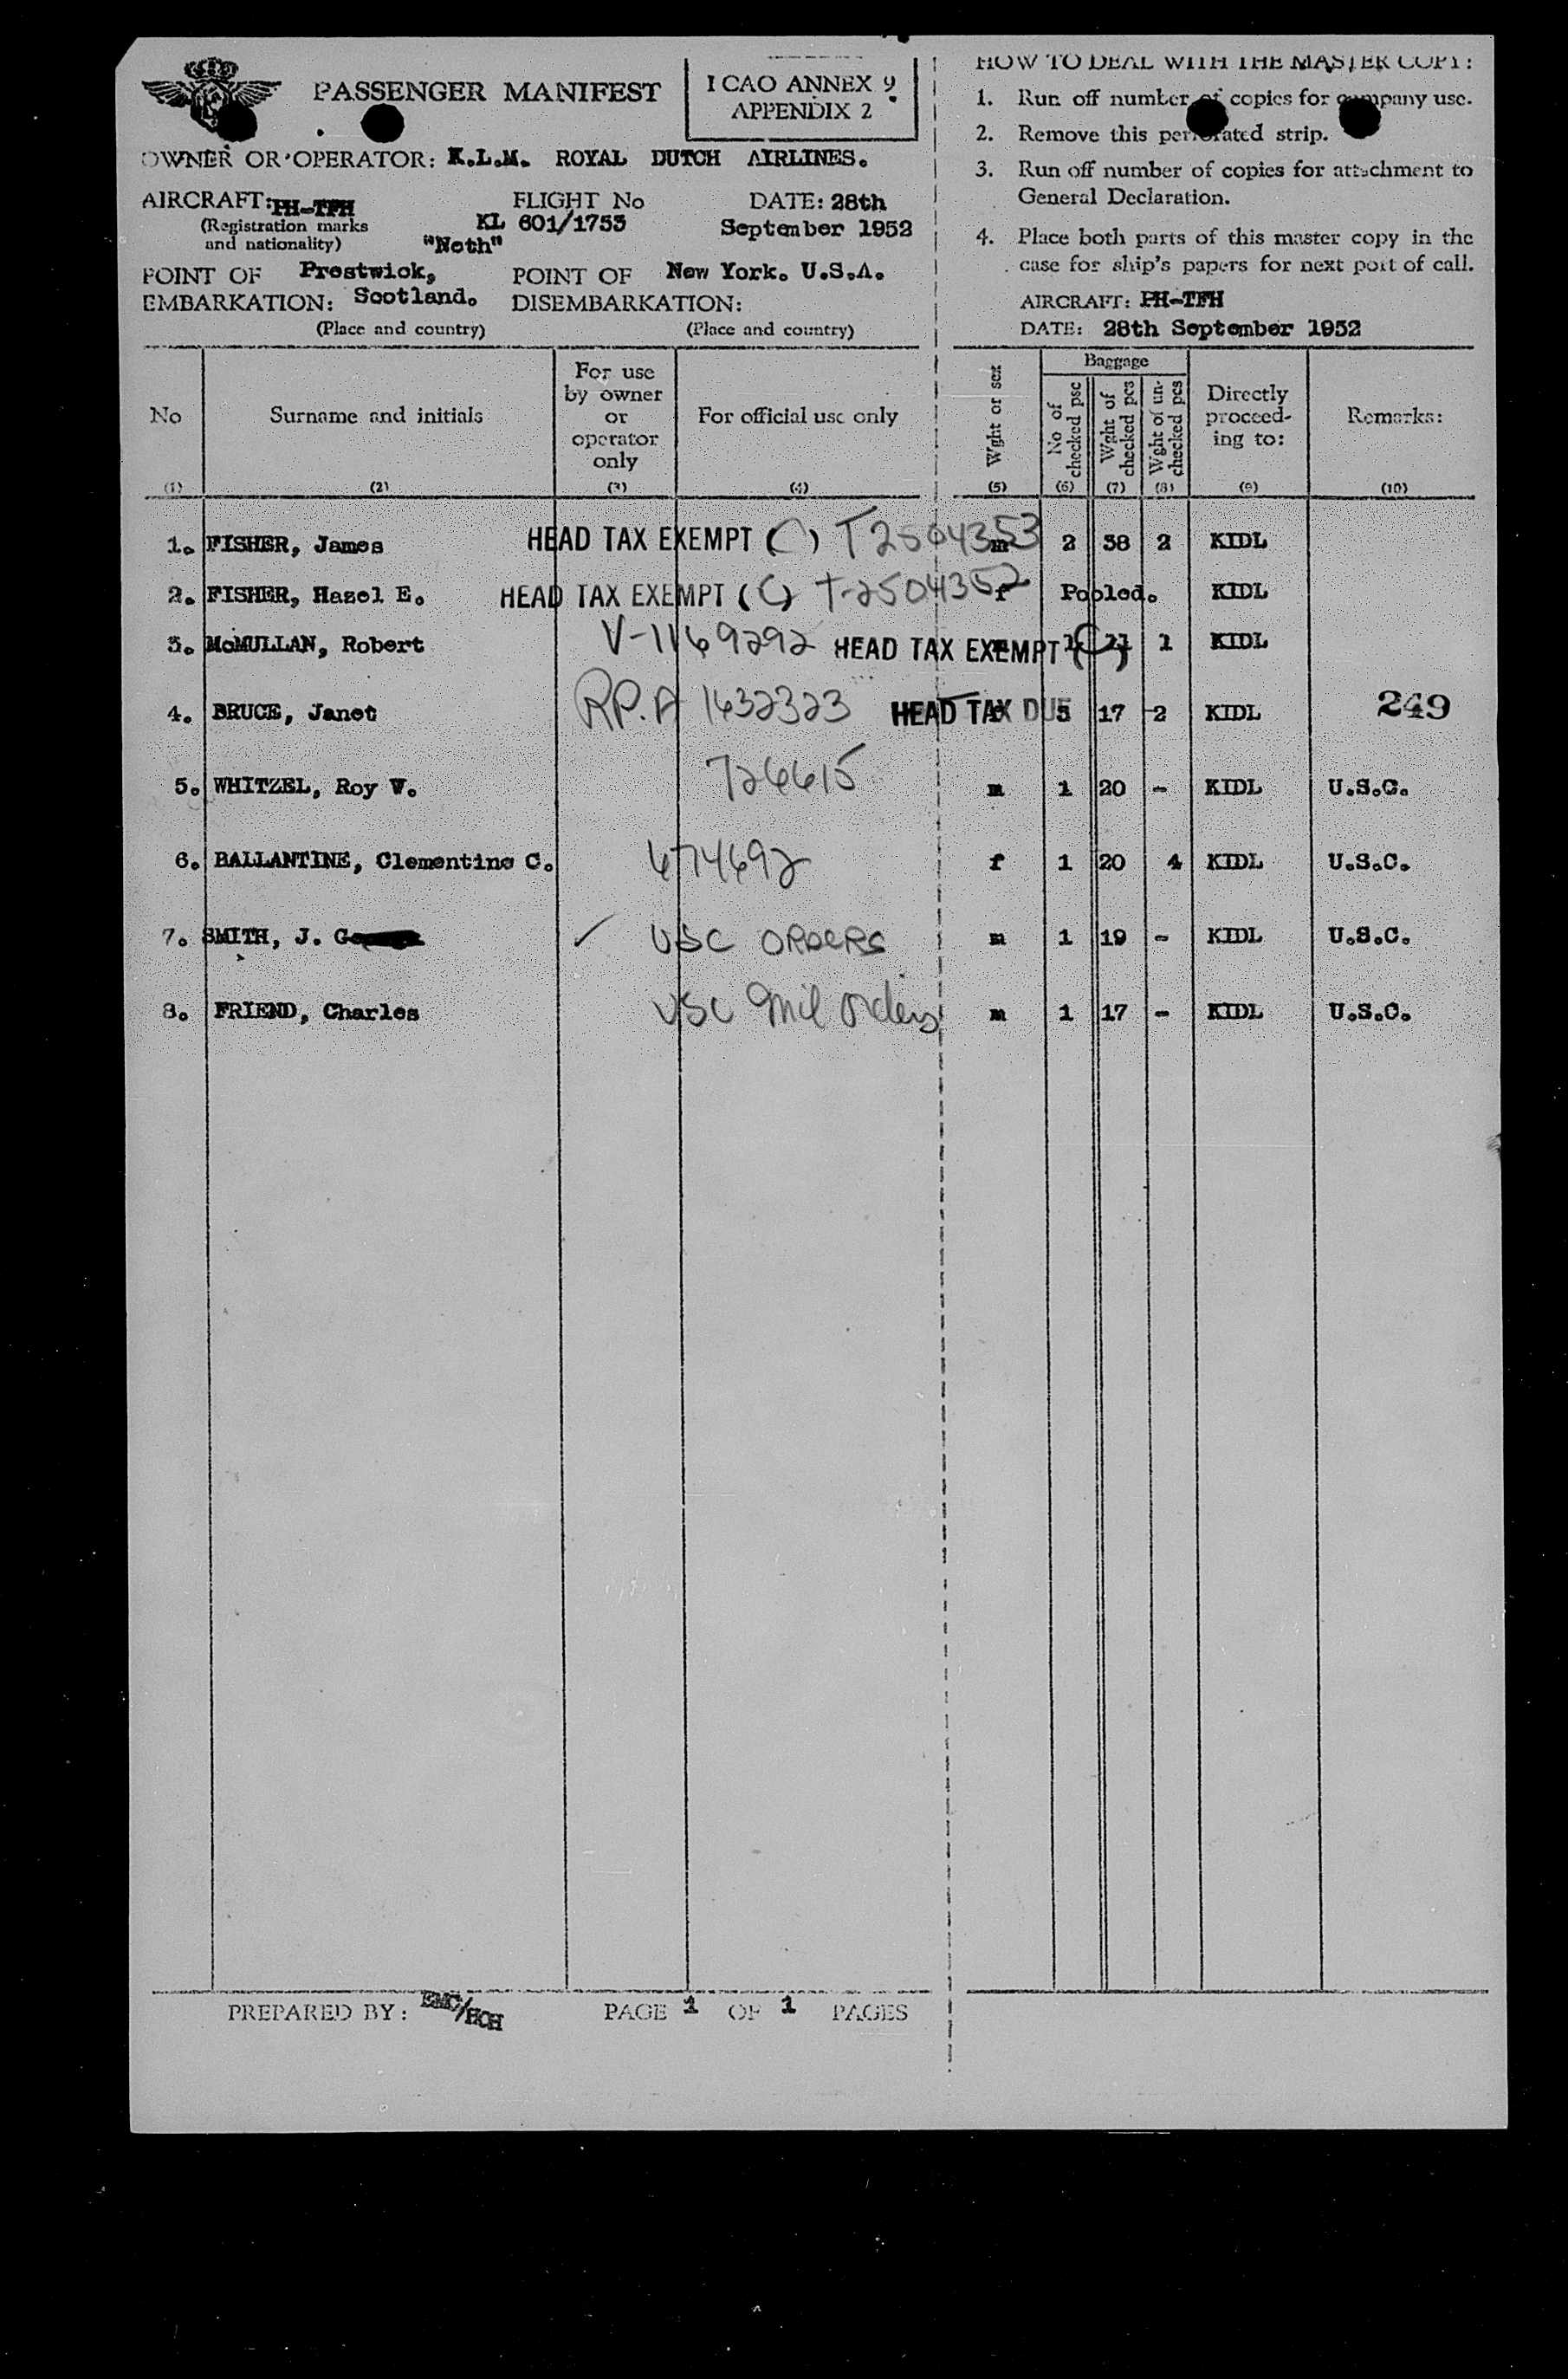 PASSENGER MANIFEST
ICAO ANNEX 9
APPENDIX 2
OWNER OR OPERATOR: K.L.M. ROYAL DUTCH AIRLINES.
AIRCRAFT: PH-TFH
(Registration marks
and nationality) "Neth"
FLIGHT No
KL 601/1753
DATE: 28th
September 1952
POINT OF Prestwick,
EMBARKATION: Scotland.
(Place and country)
POINT OF New York. U.S.A.
DISEMBARKATION:
(Place and country)
HOW TO DEAL WITH THE MASTER COPY:
1. Run off number of copies for company use.
2. Remove this perforated strip.
3. Run off number of copies for attachment to
General Declaration.
4. Place both parts of this master copy in the
case for ship's papers for next port of call.
AIRCRAFT: PH-TFH
DATE: 28th September 1952
No
(1)
Surname and initials
(2)
For use
by owner
or
operator
only
(3)
For official use only
(4)
Wght or sex
(5)
Baggage
No of
checked psc
(6)
Wght of
checked pcs
(7)
Wght of un-
checked pcs
(8)
Directly
proceed-
ing to:
(9)
Remarks:
(10)
1. FISHER, James HEAD TAX EXEMPT (C) T2504353 m 2 38 2 KIDL
2. FISHER, Hazel E. HEAD TAX EXEMPT (C) T-2504352 f Pooled. KIDL
3. McMULLAN, Robert V-1169292 HEAD TAX EXEMPT (C) 1 KIDL
4. BRUCE, Janet RP.A 1432323 HEAD TAX DUE 17 2 KIDL 249
5. WHITZEL, Roy W. 726615 m 1 20 - KIDL U.S.C.
6. BALLANTINE, Clementine C. 474692 f 1 20 4 KIDL U.S.C.
7. SMITH, J. G. ✓ USC ORDERS m 1 19 - KIDL U.S.C.
8. FRIEND, Charles USC mil orders m 1 17 - KIDL U.S.C.
PREPARED BY: EMC/HCH PAGE 1 OF 1 PAGES